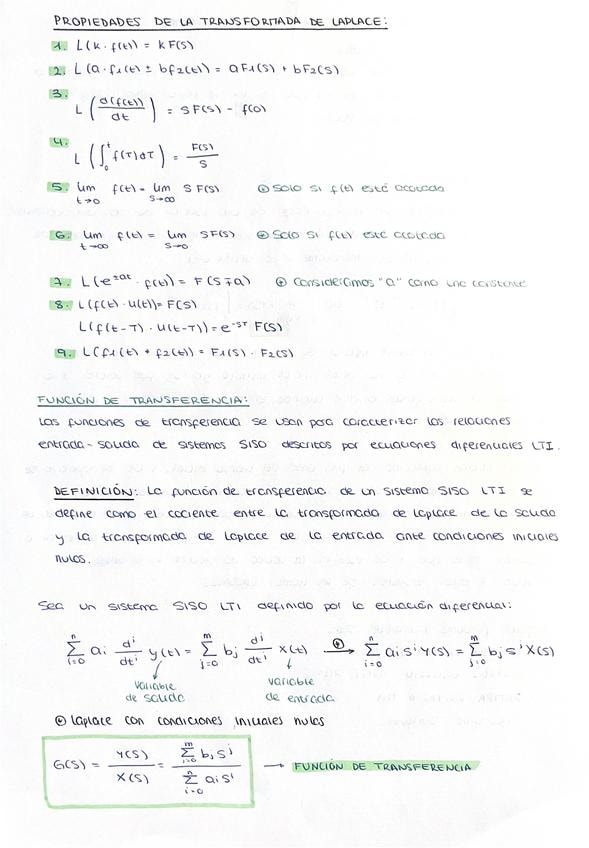 PROPIEDADES DE LA TRANSFORMADA DE LAPLACE:
1. L(k · f(t)) = k F(s)
2. L(a · f1(t) ± bf2(t)) = aF1(s) + bF2(s)
3. L(d(f(t))/dt) = SF(s) - f(0)
4. L(∫₀ᵗ f(τ)dτ) = F(s)/S
5. lim t→0 f(t) = lim s→∞ S F(s) * Solo si f(t) está acotada
6. lim t→∞ f(t) = lim s→0 SF(s) * Solo si f(t) está acotada
7. L(e^±at · f(t)) = F(s∓a) * Consideramos "a" como una constante
8. L(f(t) · u(t)) = F(s)
L(f(t-T) · u(t-T)) = e^-sT F(s)
9. L(f1(t) * f2(t)) = F1(s) · F2(s)
FUNCIÓN DE TRANSFERENCIA:
Las funciones de transferencia se usan para caracterizar las relaciones
entrada-salida de sistemas SISO descritos por ecuaciones diferenciales LTI.
DEFINICIÓN: La función de transferencia de un sistema SISO LTI se
define como el cociente entre la transformada de Laplace de la salida
y la transformada de Laplace de la entrada ante condiciones iniciales
nulas.
Sea un sistema SISO LTI definido por la ecuación diferencial:
∑ⁿᵢ₌₀ aᵢ dⁱ/dtⁱ y(t) = ∑ᵐⱼ₌₀ bⱼ dⁱ/dtⁱ x(t) * → ∑ⁿᵢ₌₀ aᵢ sⁱ Y(s) = ∑ᵐⱼ₌₀ bⱼ sʲ X(s)
variable de salida
variable de entrada
* Laplace con condiciones iniciales nulas
G(s) = Y(s)/X(s) = ∑ᵐᵢ₌₀ bⱼ sʲ / ∑ⁿᵢ₌₀ aᵢ sⁱ → FUNCIÓN DE TRANSFERENCIA